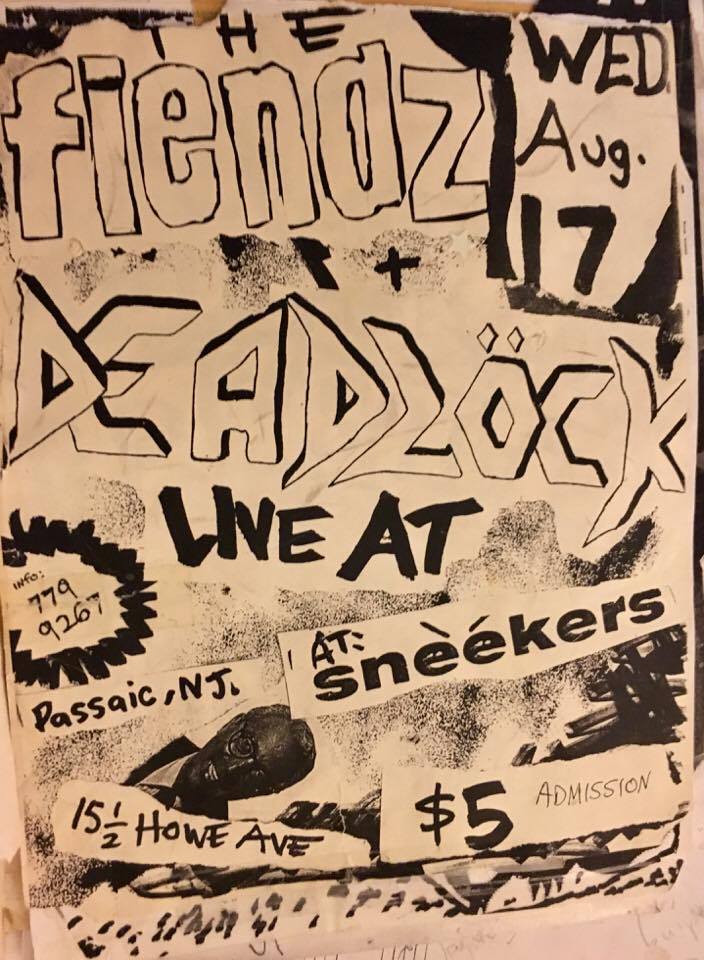 THE
fiendz
WED
Aug.
17
+
DEADLÖCK
LIVE AT
INFO:
779
9267
AT:
snèékers
Passaic, NJ.
15 1/2 HOWE AVE
$5 ADMISSION